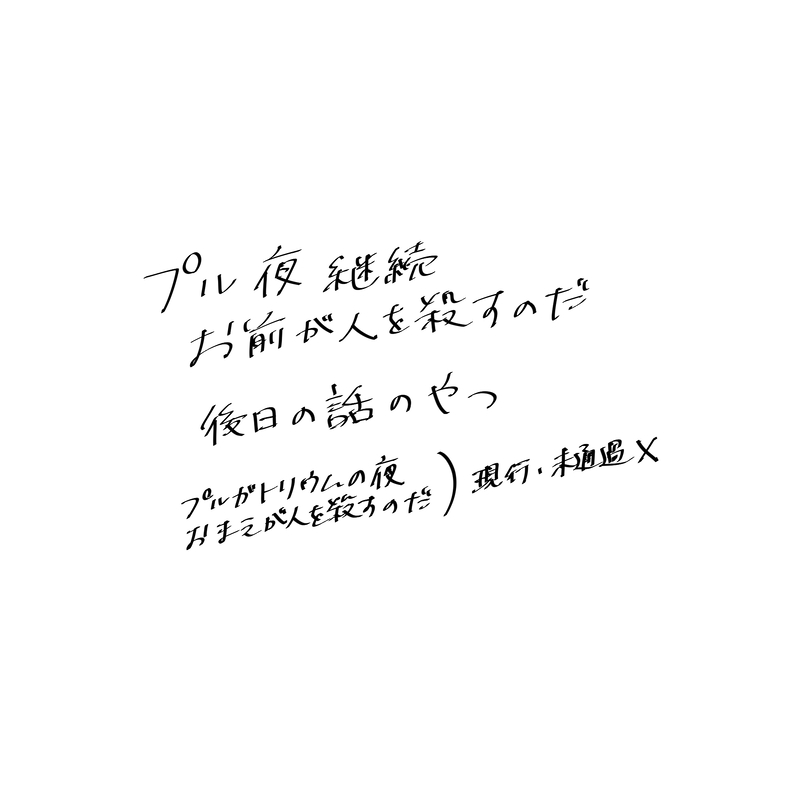 プル夜 継続
お前が人を殺すのだ
後日の話のやつ
プルガトリウムの夜
おまえが人を殺すのだ ) 現行・未通過×